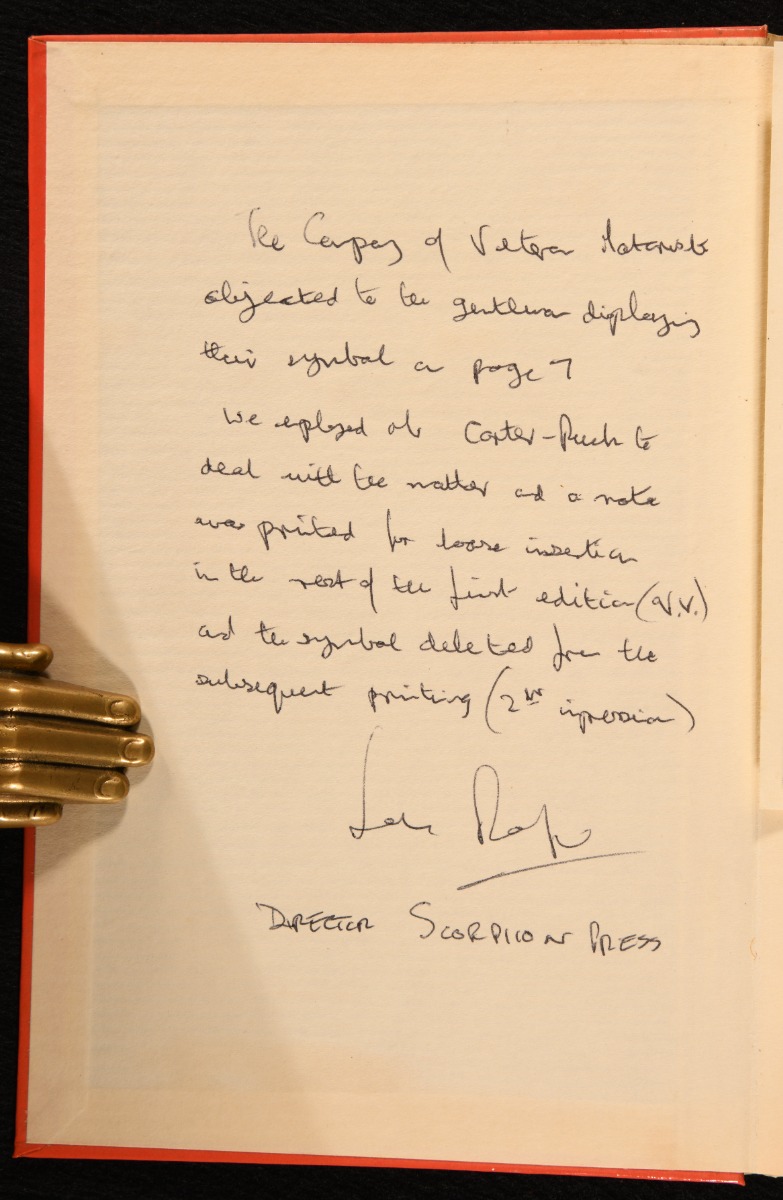 The Company of Veteran Motorists
objected to the gentleman displaying
their symbol on page 7
We employed Carter-Ruck to
deal with the matter and a note
was printed for loose insertion
in the rest of the first edition (q.v.)
and the symbol deleted from the
subsequent printing (2nd impression)
DIRECTOR SCORPION PRESS